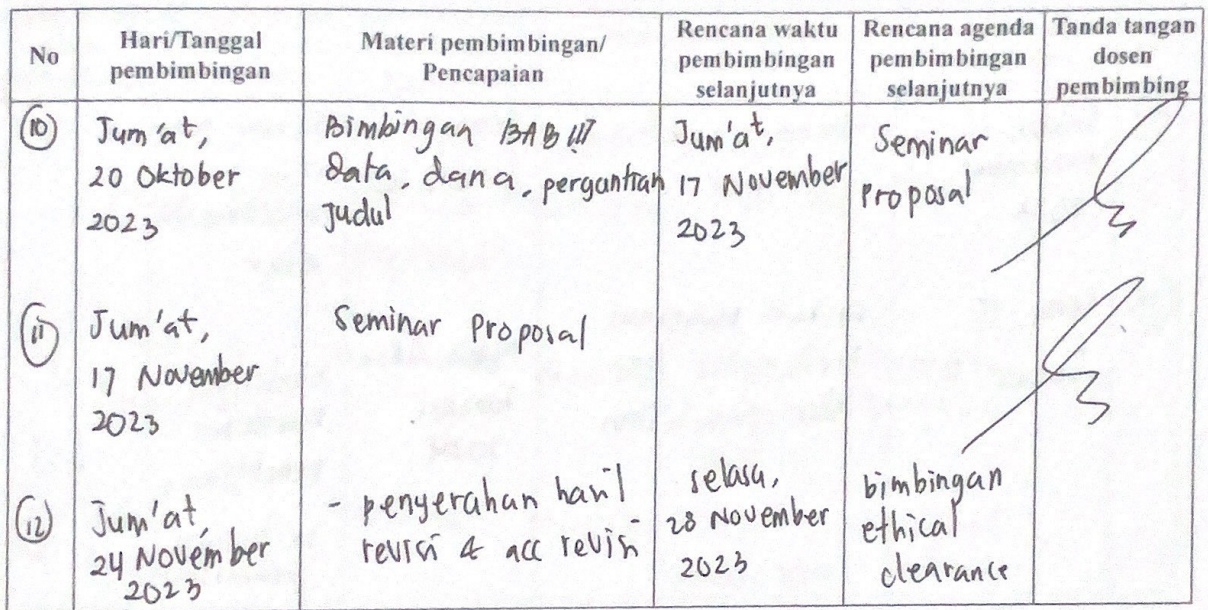 No
Hari/Tanggal
pembimbingan
Materi pembimbingan/
Pencapaian
Rencana waktu
pembimbingan
selanjutnya
Rencana agenda
pembimbingan
selanjutnya
Tanda tangan
dosen
pembimbing
10
Jum'at,
20 Oktober
2023
Bimbingan BAB III
data, dana, pergantian
Judul
Jum'at,
17 November
2023
Seminar
Proposal
11
Jum'at,
17 November
2023
Seminar Proposal
12
Jum'at,
24 November
2023
- penyerahan hasil
revisi & acc revisi
selasa,
28 November
2023
bimbingan
ethical
clearance